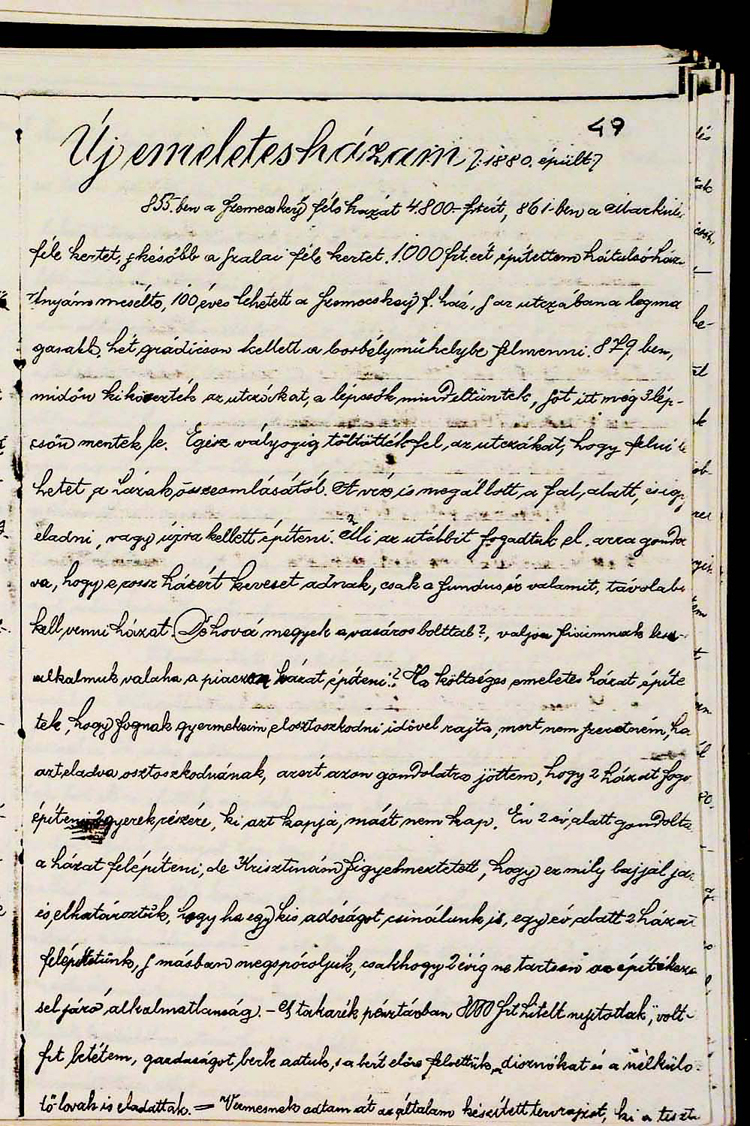 49
Új emeletes házam /: 1880. épült :/
855. ben a Szemecskey féle házat 4.800- frtért, 861-ben a
féle kertet, s később a Szalai féle kertet. 1.000 frt.ért építettem hátulsó ház
Anyám mesélte, 100 éves lehetett a Szemecskey f. ház, s az utczában a legma
gasabb, hét grádicson kellett a borbélyműhelybe felmenni. 879 ben,
midőn kikövezték az utczákat, a lépcsők mind eltüntek, sőt itt még 3 lép-
csőn mentek le. Egész vályogig töltötték fel, az utczákat, hogy
hetet a házak összeomlásától. A víz is megállott, a fal, alatt, és
eladni, vagy újra kellett építeni. Mi, az utóbbit fogadtuk el. arra gondol
va, hogy e rossz házért keveset adnak, csak a fundus ér valamit, távolabb
kell, venni házat. De hová megyek a vasáros bolttal?, valjon fiaimnak lesz-
alkalmuk valaha, a piaczon házat építeni? Ha költséges emeletes házat építe
tek, hogy fognak gyermekeim elosztoszkodni idővel rajta, mert nem szeretném, ha
azt eladva osztoszkodnának, azért azon gondolatra jöttem, hogy 2 házat fogo
építeni 2 gyerek részére, ki azt kapja, mást nem kap. Én 2 év, alatt gondolta
a házat felépíteni, de Krisztinám figyelmeztetett, hogy ez mily bajjal jár
és, elhatároztuk, hogy ha egy kis adóságot, csinálunk is, egy év alatt 2 házat
felépítetünk, s másban megspóroljuk, csakhogy 2 évig ne tartson az építkezé
sel járó alkalmatlanság. - A takarék pénztárban frt hitelt nyitottak, volt-
frt betétem, gazdaságot bérbe adtuk, s a bért előre felvettük, disznókat és a nélkülö-
tő lovak is eladattak. = Vermesnek adtam át az általam készített tervrajzot, ki a tiszta